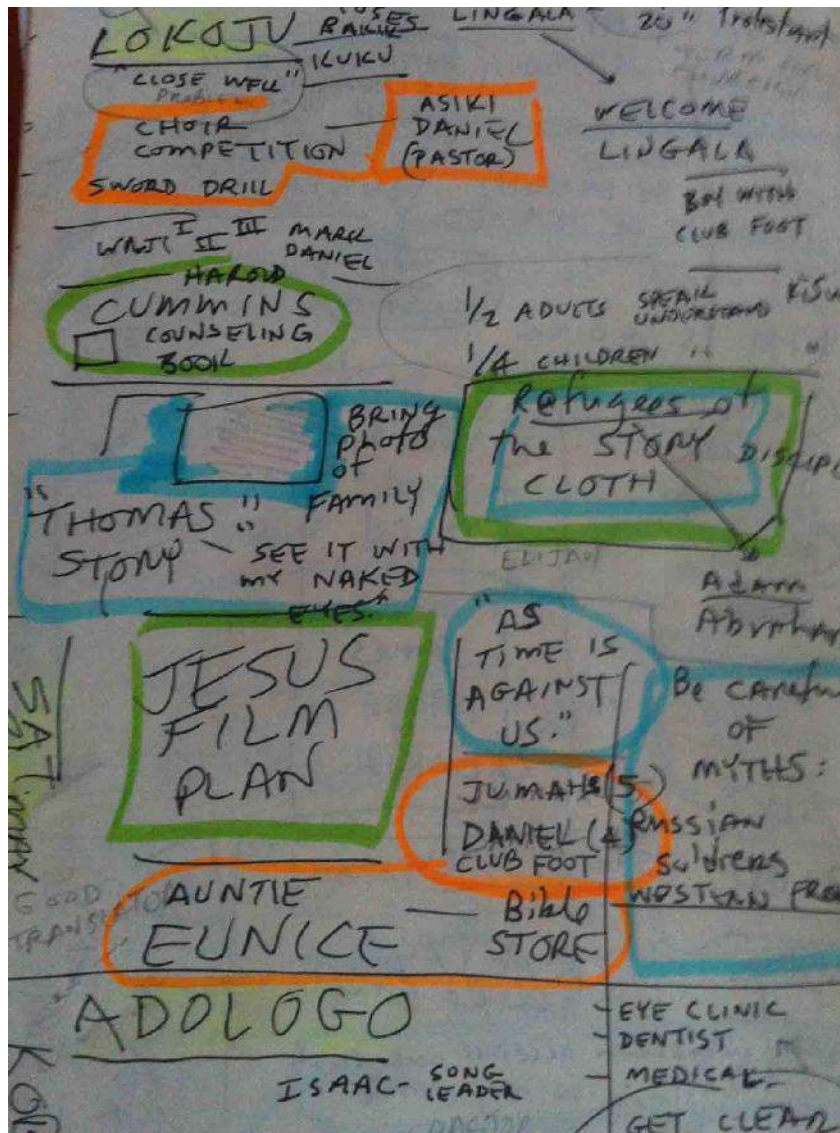 LOKOJU
BAKULES
KUKU
LINGALA
20" Protestant
"CLOSE WELL"
PROBLEM
CHOIR
COMPETITION
SWORD DRILL
ASIKI
DANIEL
(PASTOR)
WELCOME
LINGALA
BOY WITH
CLUB FOOT
I II III MARK
DANIEL
HAROLD
CUMMINS
COUNSELING
BOOK
1/2 ADULTS SPEAK
UNDERSTAND
1/4 CHILDREN " "
BRING
PHOTO
OF
FAMILY
"THOMAS"
STORY
SEE IT WITH
MY NAKED
EYES."
Refugees of
the STORY
CLOTH
ELIJAH
Adam
JESUS
FILM
PLAN
"AS
TIME IS
AGAINST
US."
Be careful
OF
MYTHS:
RUSSIAN
Soldiers
WESTERN
JUMAHS (5)
DANIEL (4)
CLUB FOOT
SAT. MAY
GOOD
TRANSLATOR
AUNTIE
EUNICE
Bible
STORE
ADOLOGO
ISAAC- SONG
LEADER
- EYE CLINIC
- DENTIST
- MEDICAL
GET CLEAR